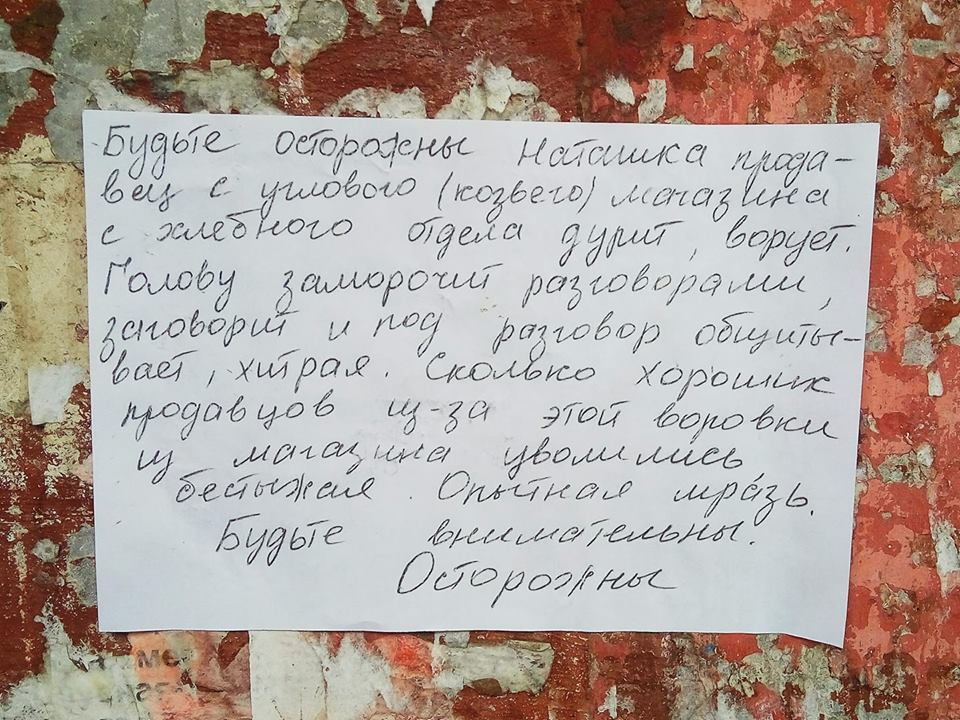 Будьте осторожны Наташка прода-
вец с углового (козьего) магазина
с хлебного отдела дурит, ворует.
Голову заморочит разговорами,
заговорит и под разговор общиты-
вает, хитрая. Сколько хороших
продавцов из-за этой воровки
из магазина уволились,
бестыжая. Опытная мразь.
Будьте внимательны.
Осторожны
ме